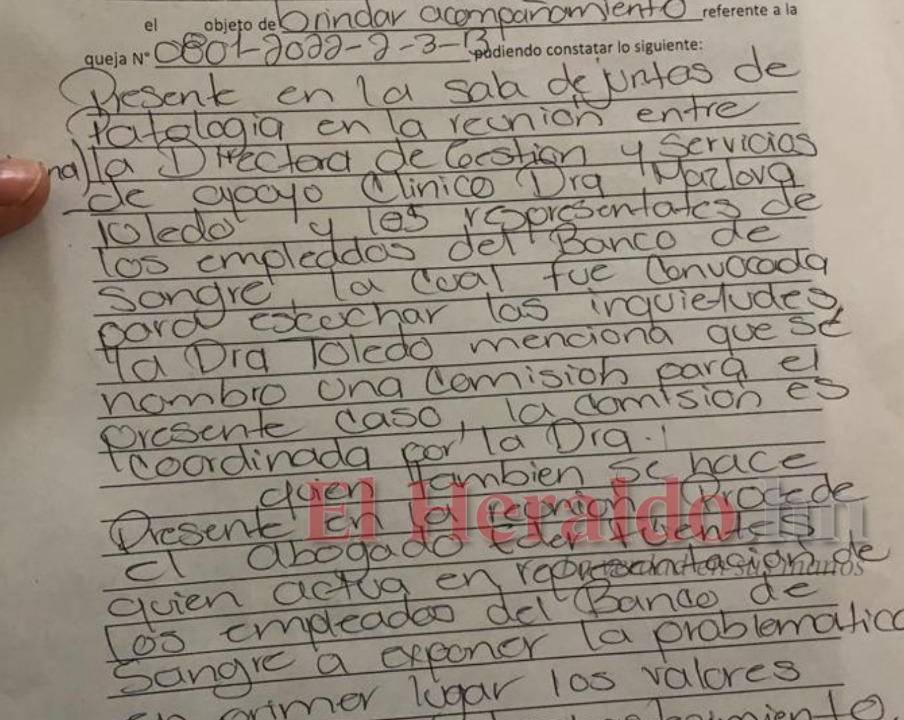 el objeto de brindar acompañamiento referente a la
queja N° 0801-2022-2-3-13 pudiendo constatar lo siguiente:
Presente en la sala de juntas de
Patologia en la reunión entre
la Directora de Gestion y Servicios
de apoyo Clinico Dra Mazlova
Toledo y los representates de
los empleddos del Banco de
Sangre, la cual fue Convocada
para escuchar las inquietudes,
la Dra Toledo menciona que se
nombro una Comision para el
presente caso, la comision es
Coordinada por la Dra.
quien tambien se hace
Presente en la reunion, Procede
El Heraldo.hn
el abogado Eder Fuentes
quien actua en representasion de
los empleados del Banco de
Sangre a exponer la problematica
en primer lugar los valores